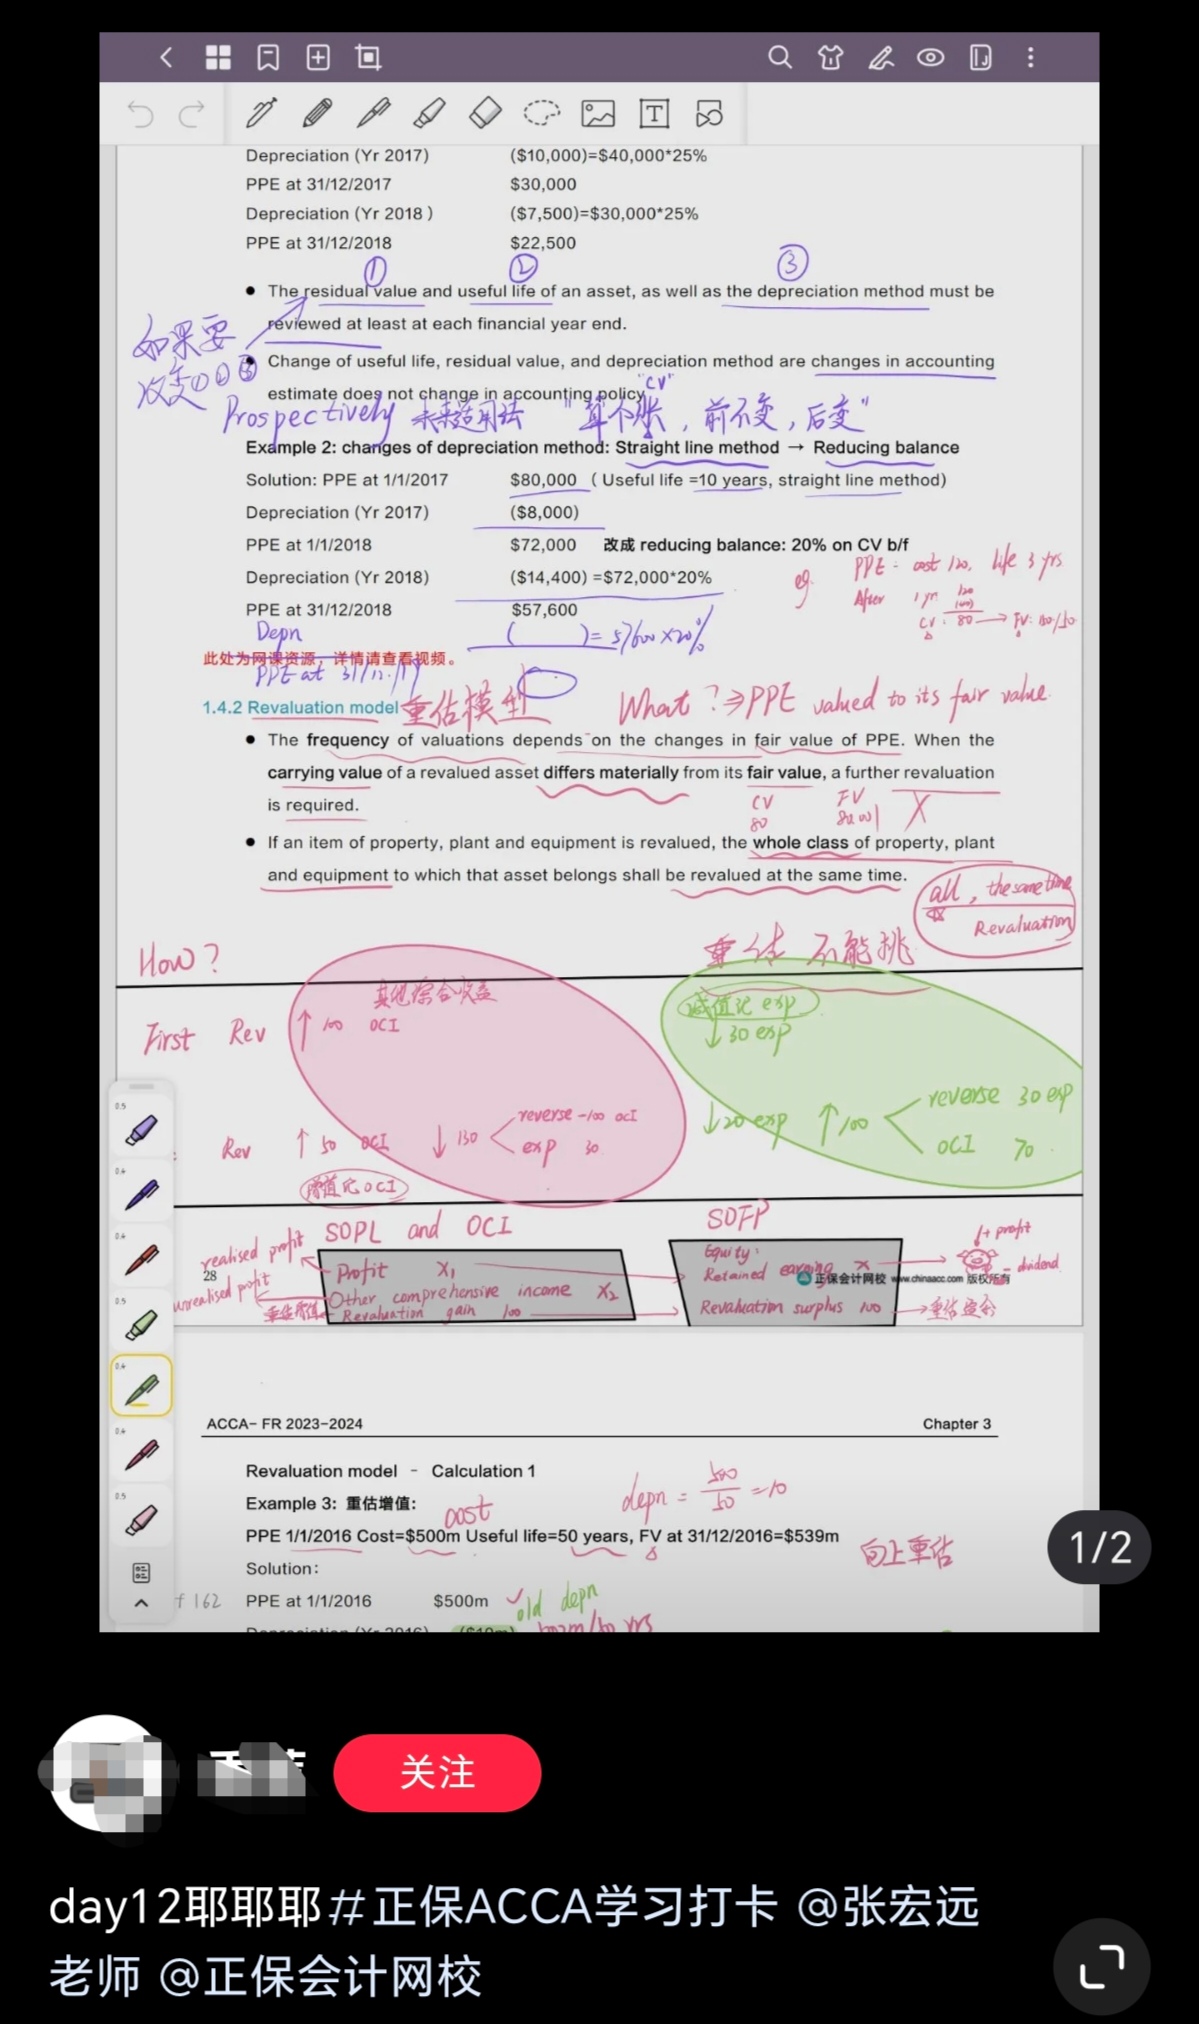 Depreciation (Yr 2017) ($10,000)=$40,000*25%
PPE at 31/12/2017 $30,000
Depreciation (Yr 2018 ) ($7,500)=$30,000*25%
PPE at 31/12/2018 $22,500
① ② ③
● The residual value and useful life of an asset, as well as the depreciation method must be
reviewed at least at each financial year end.
如果要
改变①②③
● Change of useful life, residual value, and depreciation method are changes in accounting
estimate does not change in accounting policy
"CV"
Prospectively 未来适用法 "算个账, 前不变, 后变"
Example 2: changes of depreciation method: Straight line method → Reducing balance
Solution: PPE at 1/1/2017 $80,000 ( Useful life =10 years, straight line method)
Depreciation (Yr 2017) ($8,000)
PPE at 1/1/2018 $72,000 改成 reducing balance: 20% on CV b/f
Depreciation (Yr 2018) ($14,400) =$72,000*20%
eg. PPE: cost 120, life 3 yrs
After 1 yr 120
(40)
CV: 80 → FV: 100/50
PPE at 31/12/2018 $57,600
Depn ( )= 57600×20%
此处为网课资源，详情请查看视频。
PPE at 31/12/19
1.4.2 Revaluation model 重估模型 What? ⇒ PPE valued to its fair value
● The frequency of valuations depends on the changes in fair value of PPE. When the
carrying value of a revalued asset differs materially from its fair value, a further revaluation
is required.
CV FV
80 X
● If an item of property, plant and equipment is revalued, the whole class of property, plant
and equipment to which that asset belongs shall be revalued at the same time.
all, the same time
Revaluation
How? 重估 不能挑
其他综合收益 减值记 exp
First Rev ↑ 100 OCI ↓ 30 exp
Rev ↑ 50 OCI ↓ 130 reverse -100 OCI
exp 30
↓20 exp ↑100 reverse 30 exp
OCI 70
增值记OCI
SOPL and OCI SOFP
realised profit Profit X₁
unrealised profit Other comprehensive income X₂
重估增值 Revaluation gain 100
Equity:
Retained earning X
+ profit
- dividend
Revaluation surplus 100 → 重估盈余
28
正保会计网校 www.chinaacc.com 版权所有
ACCA- FR 2023-2024 Chapter 3
Revaluation model - Calculation 1
depn = 500/50 =10
Example 3: 重估增值:
cost
PPE 1/1/2016 Cost=$500m Useful life=50 years, FV at 31/12/2016=$539m
向上重估
Solution:
PPE at 1/1/2016 $500m old depn
f 162
1/2
关注
day12耶耶耶#正保ACCA学习打卡 @张宏远
老师 @正保会计网校